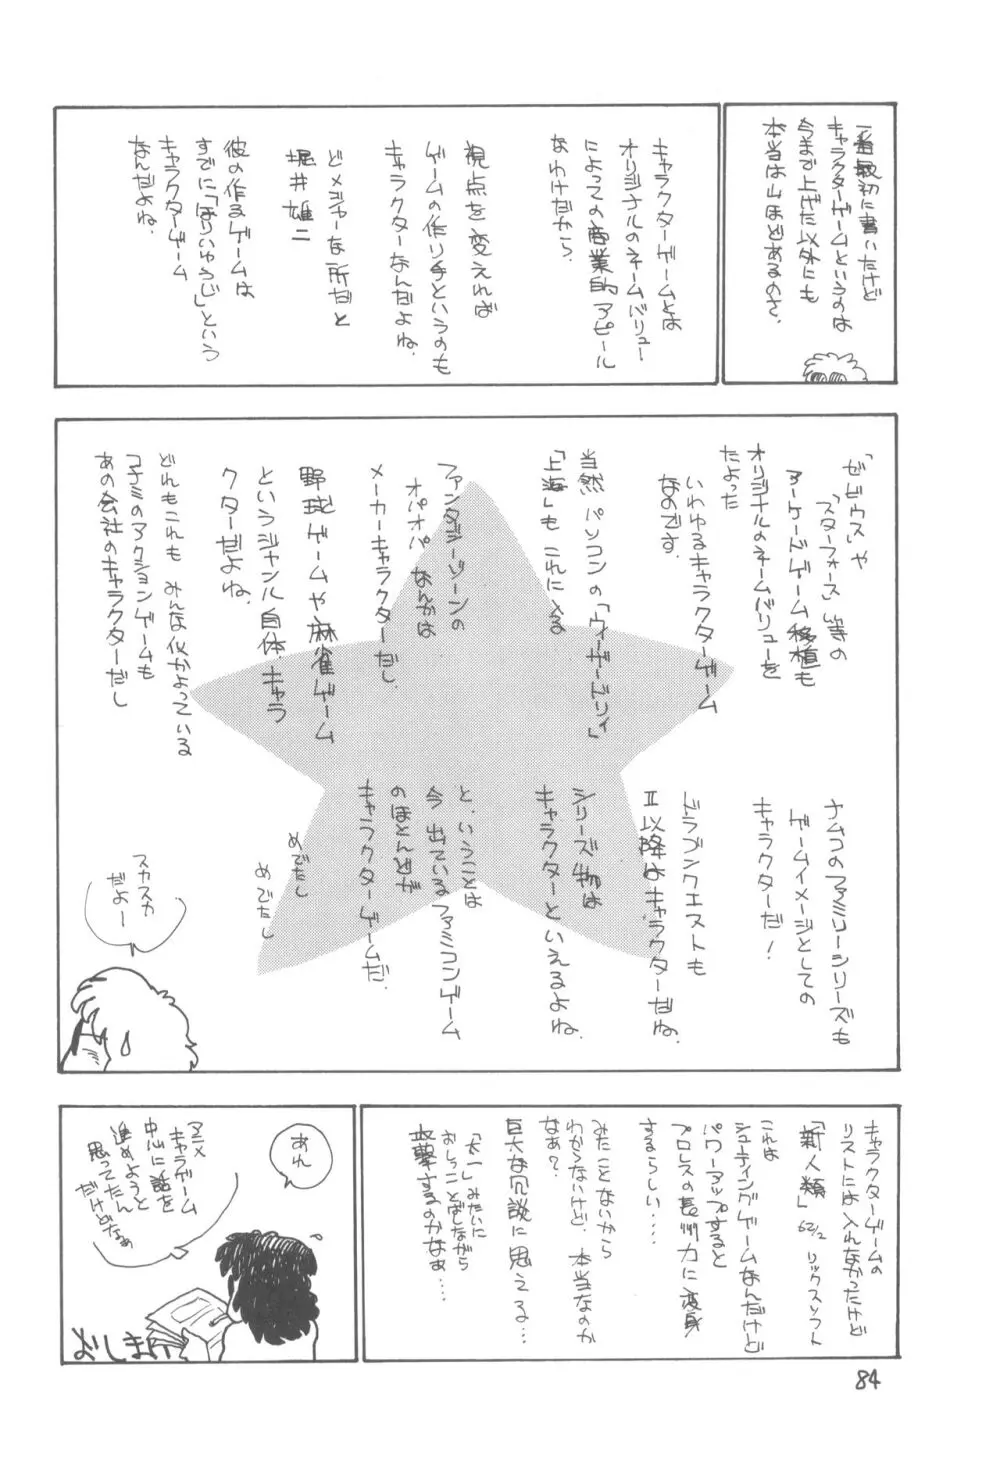 一番最初に書いたけど
キャラクターゲームというのは
今まで上げた以外にも
本当は山ほどあるのさ.
キャラクターゲームとは
オリジナルのネームバリュー
によっての商業的アピール
なわけだから.
視点を変えれば
ゲームの作り手というのも
キャラクターなんだよね.
どメジャーな所だと
堀井雄二
彼の作るゲームは
すでに「ほりいゆうじ」という
キャラクターゲーム
なんだよね.
「ゼビウス」や
「スターフォース」等の
アーケードゲーム移植も
オリジナルのネームバリューを
たよった
いわゆるキャラクターゲーム
なのです.
当然パソコンの「ウィザードリィ」
「上海」もこれに入る
ファンタジーゾーンの
オパオパなんかは
メーカーキャラクターだし.
野球ゲームや麻雀ゲーム
というジャンル自体.キャラ
クターだよね.
どれもこれもみんな似かよっている
コナミのアクションゲームも
あの会社のキャラクターだし
ナムコのファミリーシリーズも
ゲームイメージとしての
キャラクターだ!
ドラゴンクエストも
II以降はキャラクターだね.
シリーズ物は
キャラクターといえるよね.
と、いうことは
今出ているファミコンゲーム
のほとんどが
キャラクターゲームだ.
めでたし
めでたし
スカスカ
だよー
キャラクターゲームの
リストには入れなかったけど
「新人類」62/2 リックスソフト
これは
シューティングゲームなんだけど
パワーアップすると
プロレスの長州力に変身
するらしい....
みたことないから
わからないけど.本当なのか
なぁ?
巨大な冗談に思える...
「太一」みたいに
おしっことばしながら
攻撃するのかなぁ...
あれ
アニメ
キャラゲーム
中心に話を
進めようと
思ってたん
だけどなぁ
よしまい
84